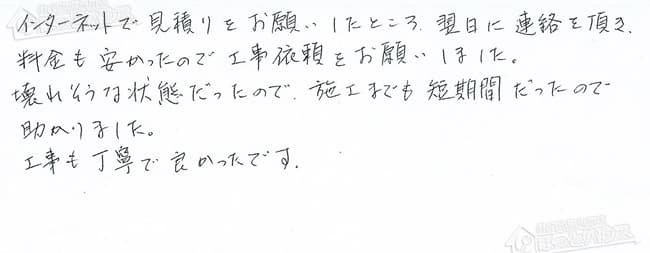 インターネットで見積りをお願いしたところ、翌日に連絡を頂き、
料金も安かったので工事依頼をお願いしました。
壊れそうな状態だったので、施工までも短期間だったので
助かりました。
工事も丁寧で良かったです。